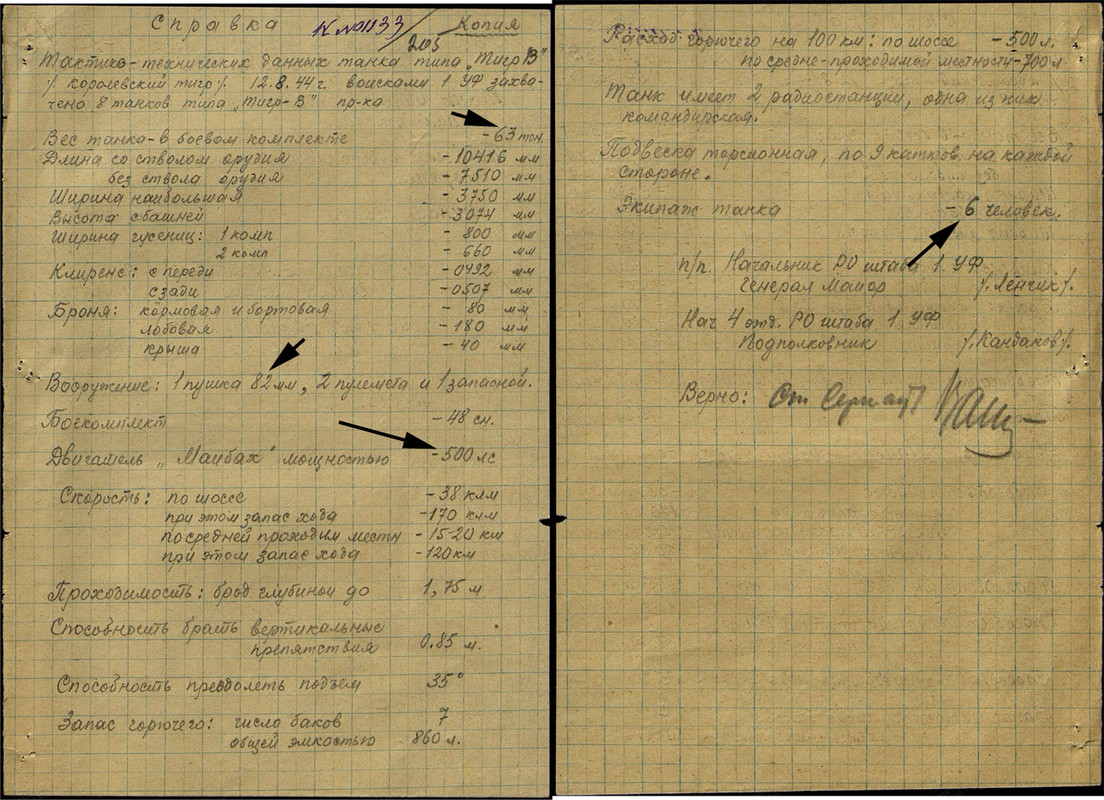 Справка К №1133/205 Копия
Тактико-технических данных танка типа „Тигр В"
/. королевский тигр /. 12.8.44г. войсками 1 УФ захва-
чено 8 танков типа „Тигр-В" пр-ка
Вес танка-в боевом комплекте - 63 тон.
Длина со стволом орудия - 10416 мм
без ствола орудия - 7510 мм
Ширина наибольшая - 3750 мм
Высота с башней - 3074 мм
Ширина гусениц: 1 комп - 800 мм
2 комп - 660 мм
Клиренс: с переди - 0492 мм
сзади - 0507 мм
Броня: кормовая и бортовая - 80 мм
лобовая - 180 мм
крыша - 40 мм
Вооружение: 1 пушка 82мм, 2 пулемета и 1 запасной.
Боекомплект - 48 сн.
Двигатель „Маибах" мощностью - 500 лс
Скорость: по шоссе - 38 клм
при этом запас хода - 170 клм
по средней проходим местн - 15-20 км
при этом запас хода - 120 км
Проходимость: брод глубиной до 1,75 м
Способность брать вертикальные
препятствия 0.85 м.
Способность преодолеть подъем 35°
Запас горючего: число баков 7
общей эмкостью 860 л.
Расход горючего на 100 км: по шоссе - 500 л.
по средне-проходимой местности - 700 л
Танк имеет 2 радиостанции, одна из них
командирская.
Подвеска торсионная, по 9 катков на каждой
стороне.
Экипаж танка - 6 человек.
п/п. Начальник РО штаба 1 УФ
Генерал Майор /. Ленчик /.
Нач 4 отд. РО штаба 1 УФ
Подполковник /. Кандаков /.
Верно: Ст Сержант